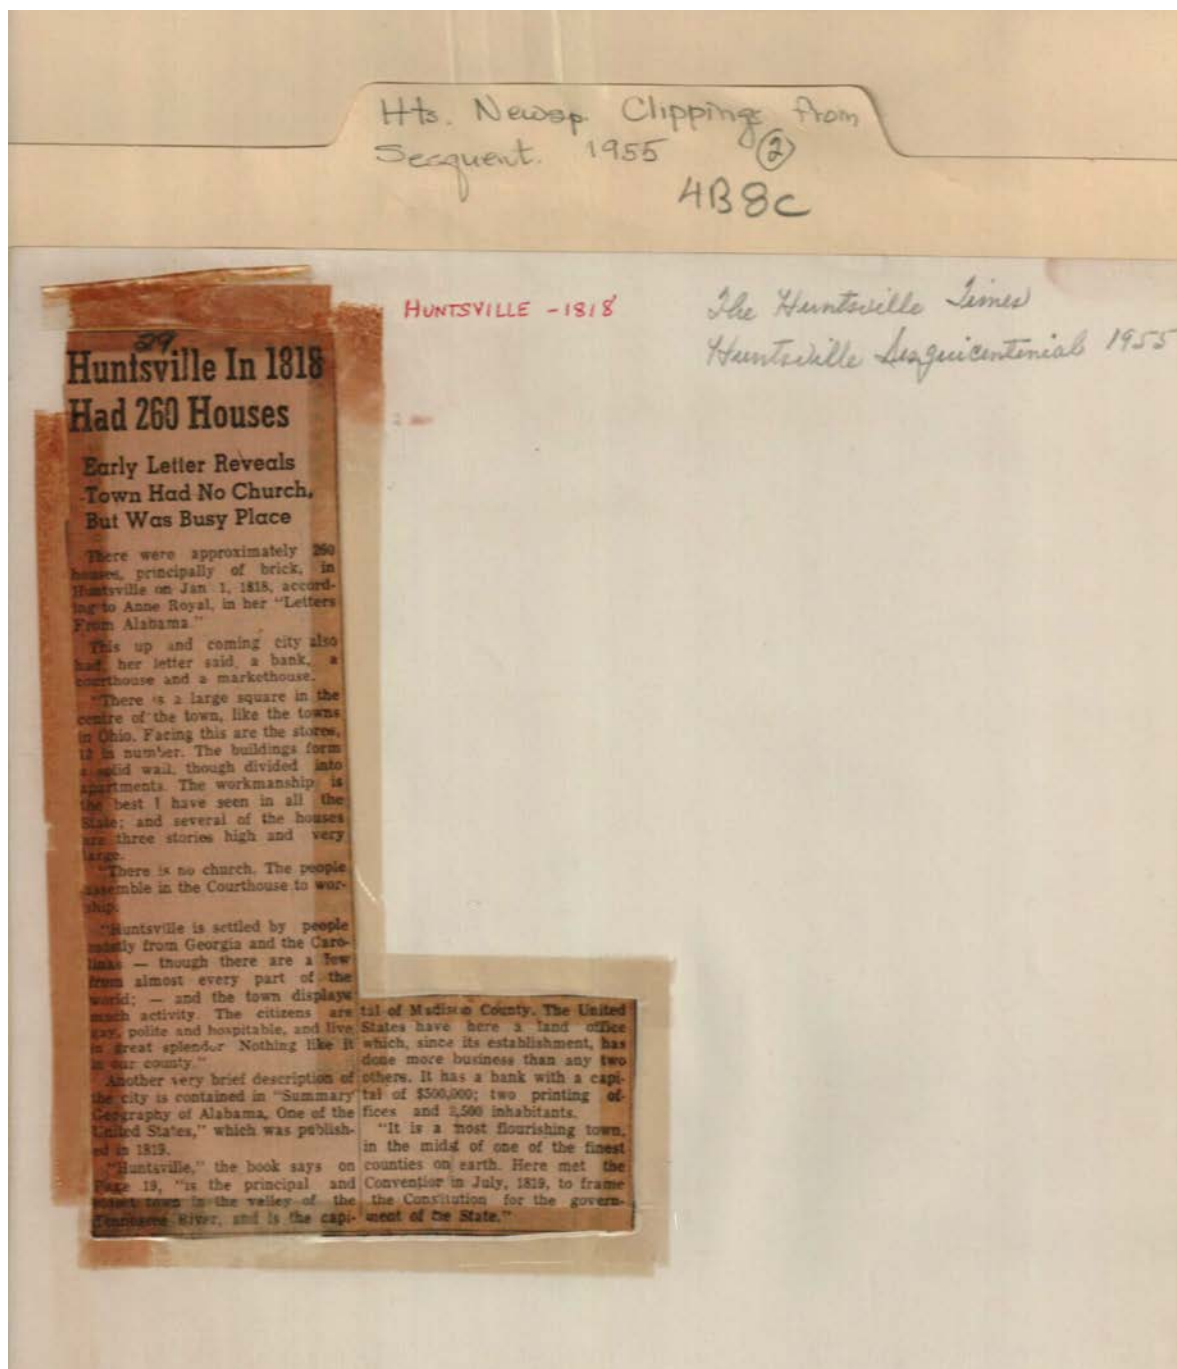 Hts. Newsp. Clippings from
Sesquent. 1955 ②
4B8C
HUNTSVILLE - 1818
The Huntsville Times
Huntsville Sesquicentenial 1955
29
Huntsville In 1818
Had 260 Houses
Early Letter Reveals
Town Had No Church,
But Was Busy Place
There were approximately 260
houses, principally of brick, in
Huntsville on Jan 1, 1818, accord-
ing to Anne Royal, in her "Letters
From Alabama."
This up and coming city also
had, her letter said, a bank, a
courthouse and a markethouse.
"There is a large square in the
centre of the town, like the towns
in Ohio. Facing this are the stores,
12 in number. The buildings form
a solid wall, though divided into
apartments. The workmanship is
the best I have seen in all the
State; and several of the houses
are three stories high and very
large.
"There is no church. The people
assemble in the Courthouse to wor-
ship.
"Huntsville is settled by people
mostly from Georgia and the Caro-
linas — though there are a few
from almost every part of the
world; — and the town displays
much activity. The citizens are
gay, polite and hospitable, and live
in great splendor Nothing like it
in our county."
Another very brief description of
the city is contained in "Summary
Geography of Alabama, One of the
United States," which was publish-
ed in 1819.
"Huntsville," the book says on
Page 19, "is the principal and
oldest town in the valley of the
Tennessee River, and is the capi-
tal of Madison County. The United
States have here a land office
which, since its establishment, has
done more business than any two
others. It has a bank with a capi-
tal of $500,000; two printing of-
fices and 2,500 inhabitants.
"It is a most flourishing town,
in the midst of one of the finest
counties on earth. Here met the
Convention in July, 1819, to frame
the Constitution for the govern-
ment of the State."